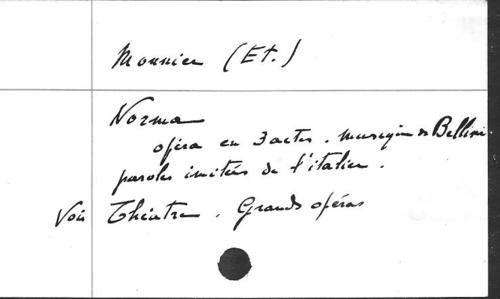 Monnier (Et.)
Norma
opéra en 3 actes. musique de Bellini.
paroles imitées de l'italien.
Voir Théatre. Grands opéras